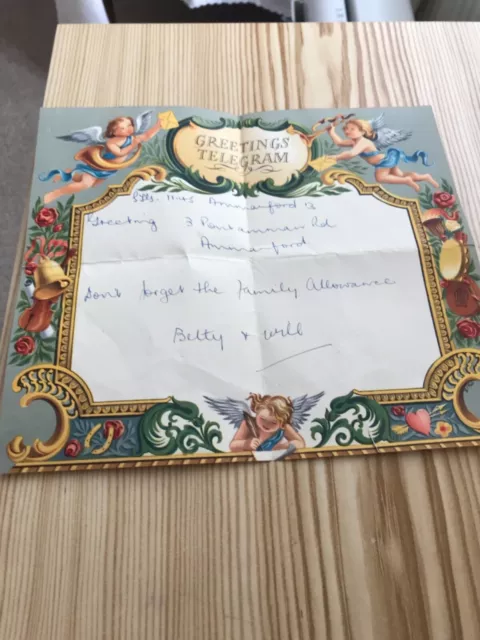 GREETINGS
TELEGRAM
Ammanford 13
Greeting 3 Pontamman Rd
Ammanford
Dont forget the family Allowance
Betty + Will